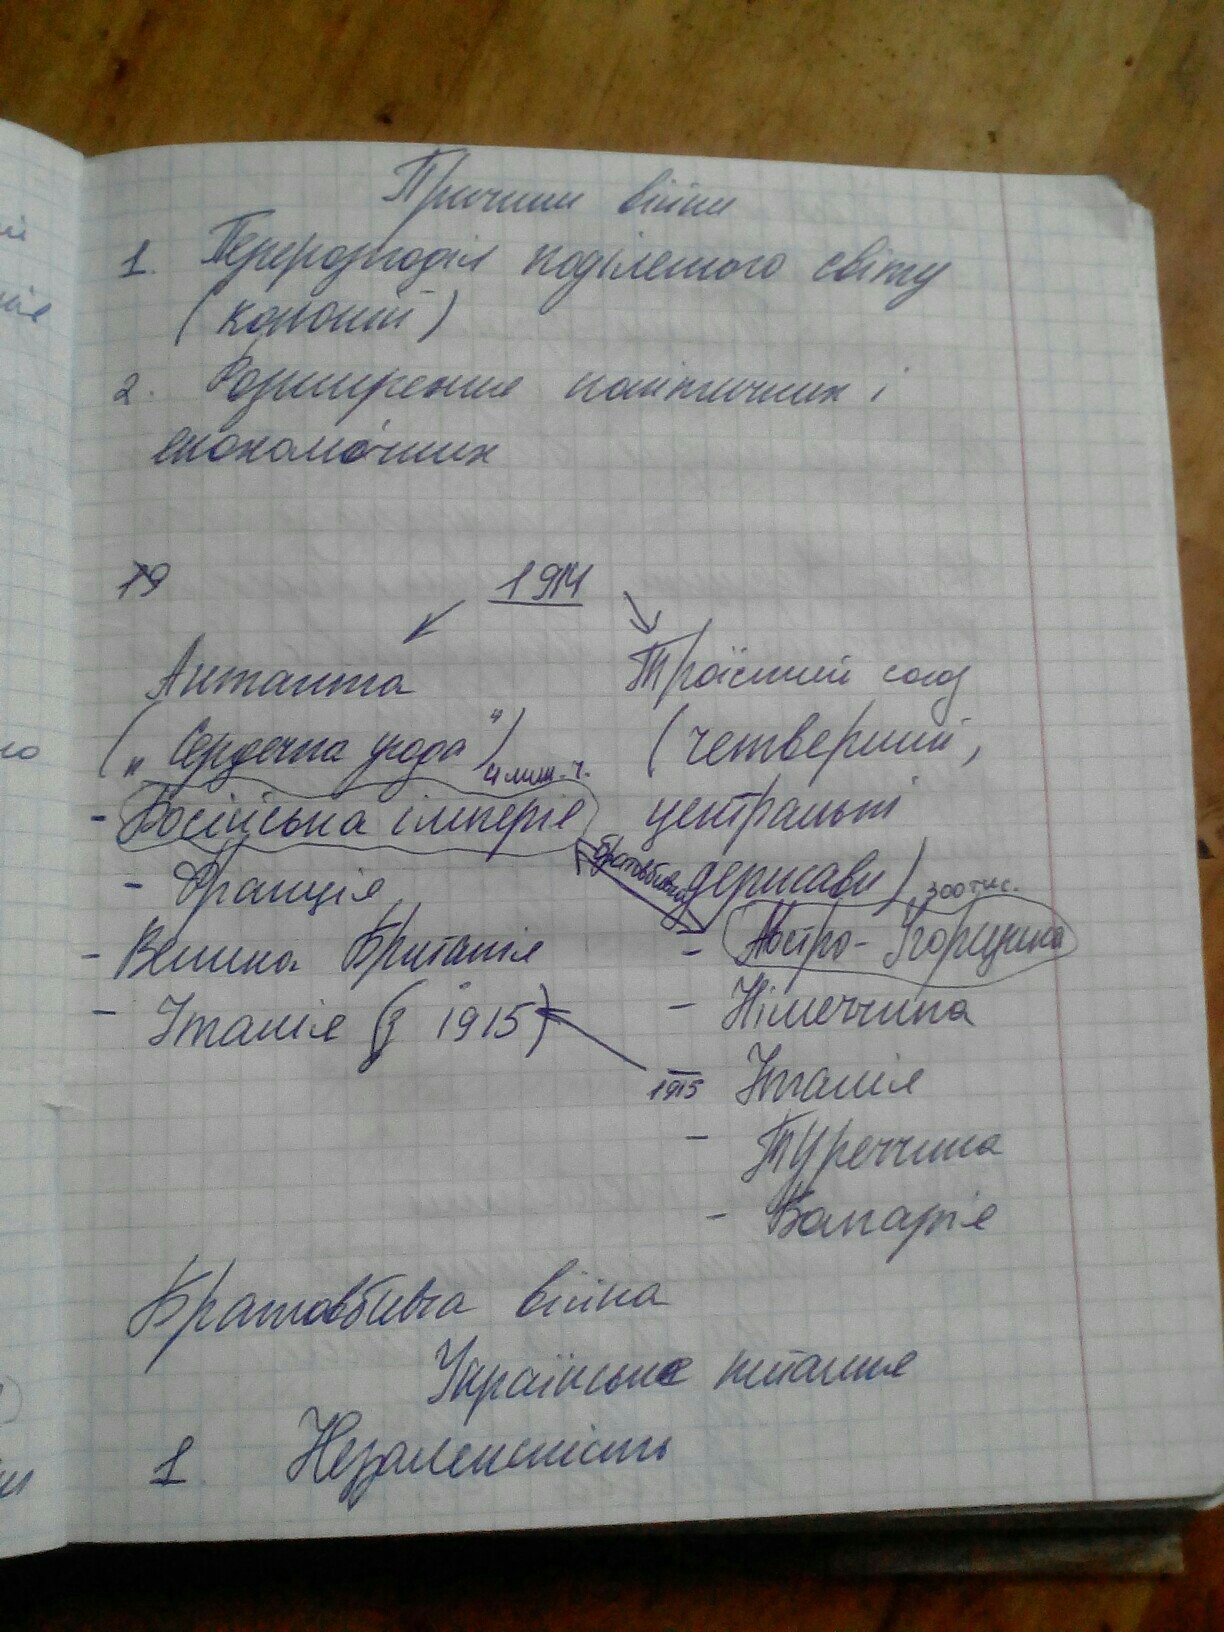 Причини війни
1. Перерозподіл поділеного світу
(колоній)
2. Розширення політичних і
економічних
19
1914
Антанта
("Сердечна угода")
4 млн. ч.
- Російська імперія
- Франція
- Велика Британія
- Італія (з 1915)
Троїстий союз
(четверний,
центральні
держави)
братовбивча
300 тис.
- Австро-Угорщина
- Німеччина
1915 Італія
- Туреччина
- Болгарія
Братовбивча війна
Українське питання
1. Незалежність